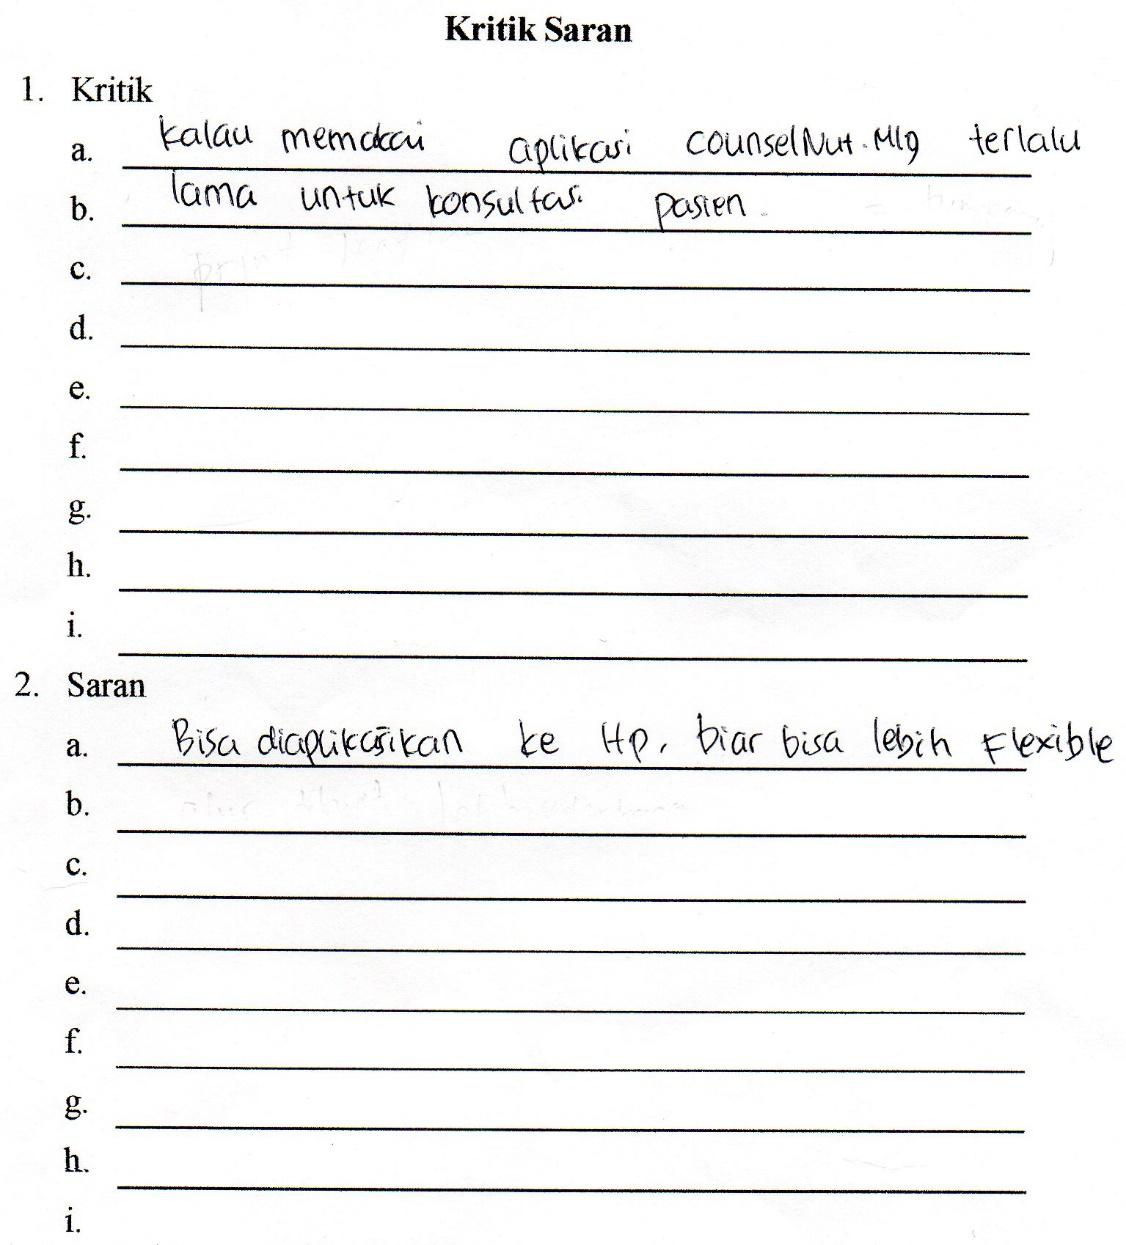 Kritik Saran
1. Kritik
a. kalau memakai aplikasi counselNut.Mlg terlalu
b. lama untuk konsultasi pasien.
c.
d.
e.
f.
g.
h.
i.
2. Saran
a. Bisa diaplikasikan ke Hp, biar bisa lebih Flexible
b.
c.
d.
e.
f.
g.
h.
i.